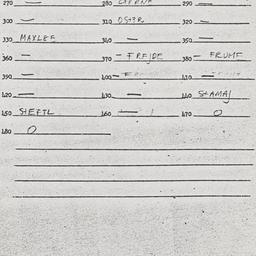 270 — 280 290 —
300 — 310 OSTER 320 —
330 MAYLEE 340 — 350 —
360 — 370 — FREJDE 380 — FRUMF
390 — 400 — 410 —
420 — 430 — 440 SLAMAJ
450 SHEFTL 460 — 470 0
480 0